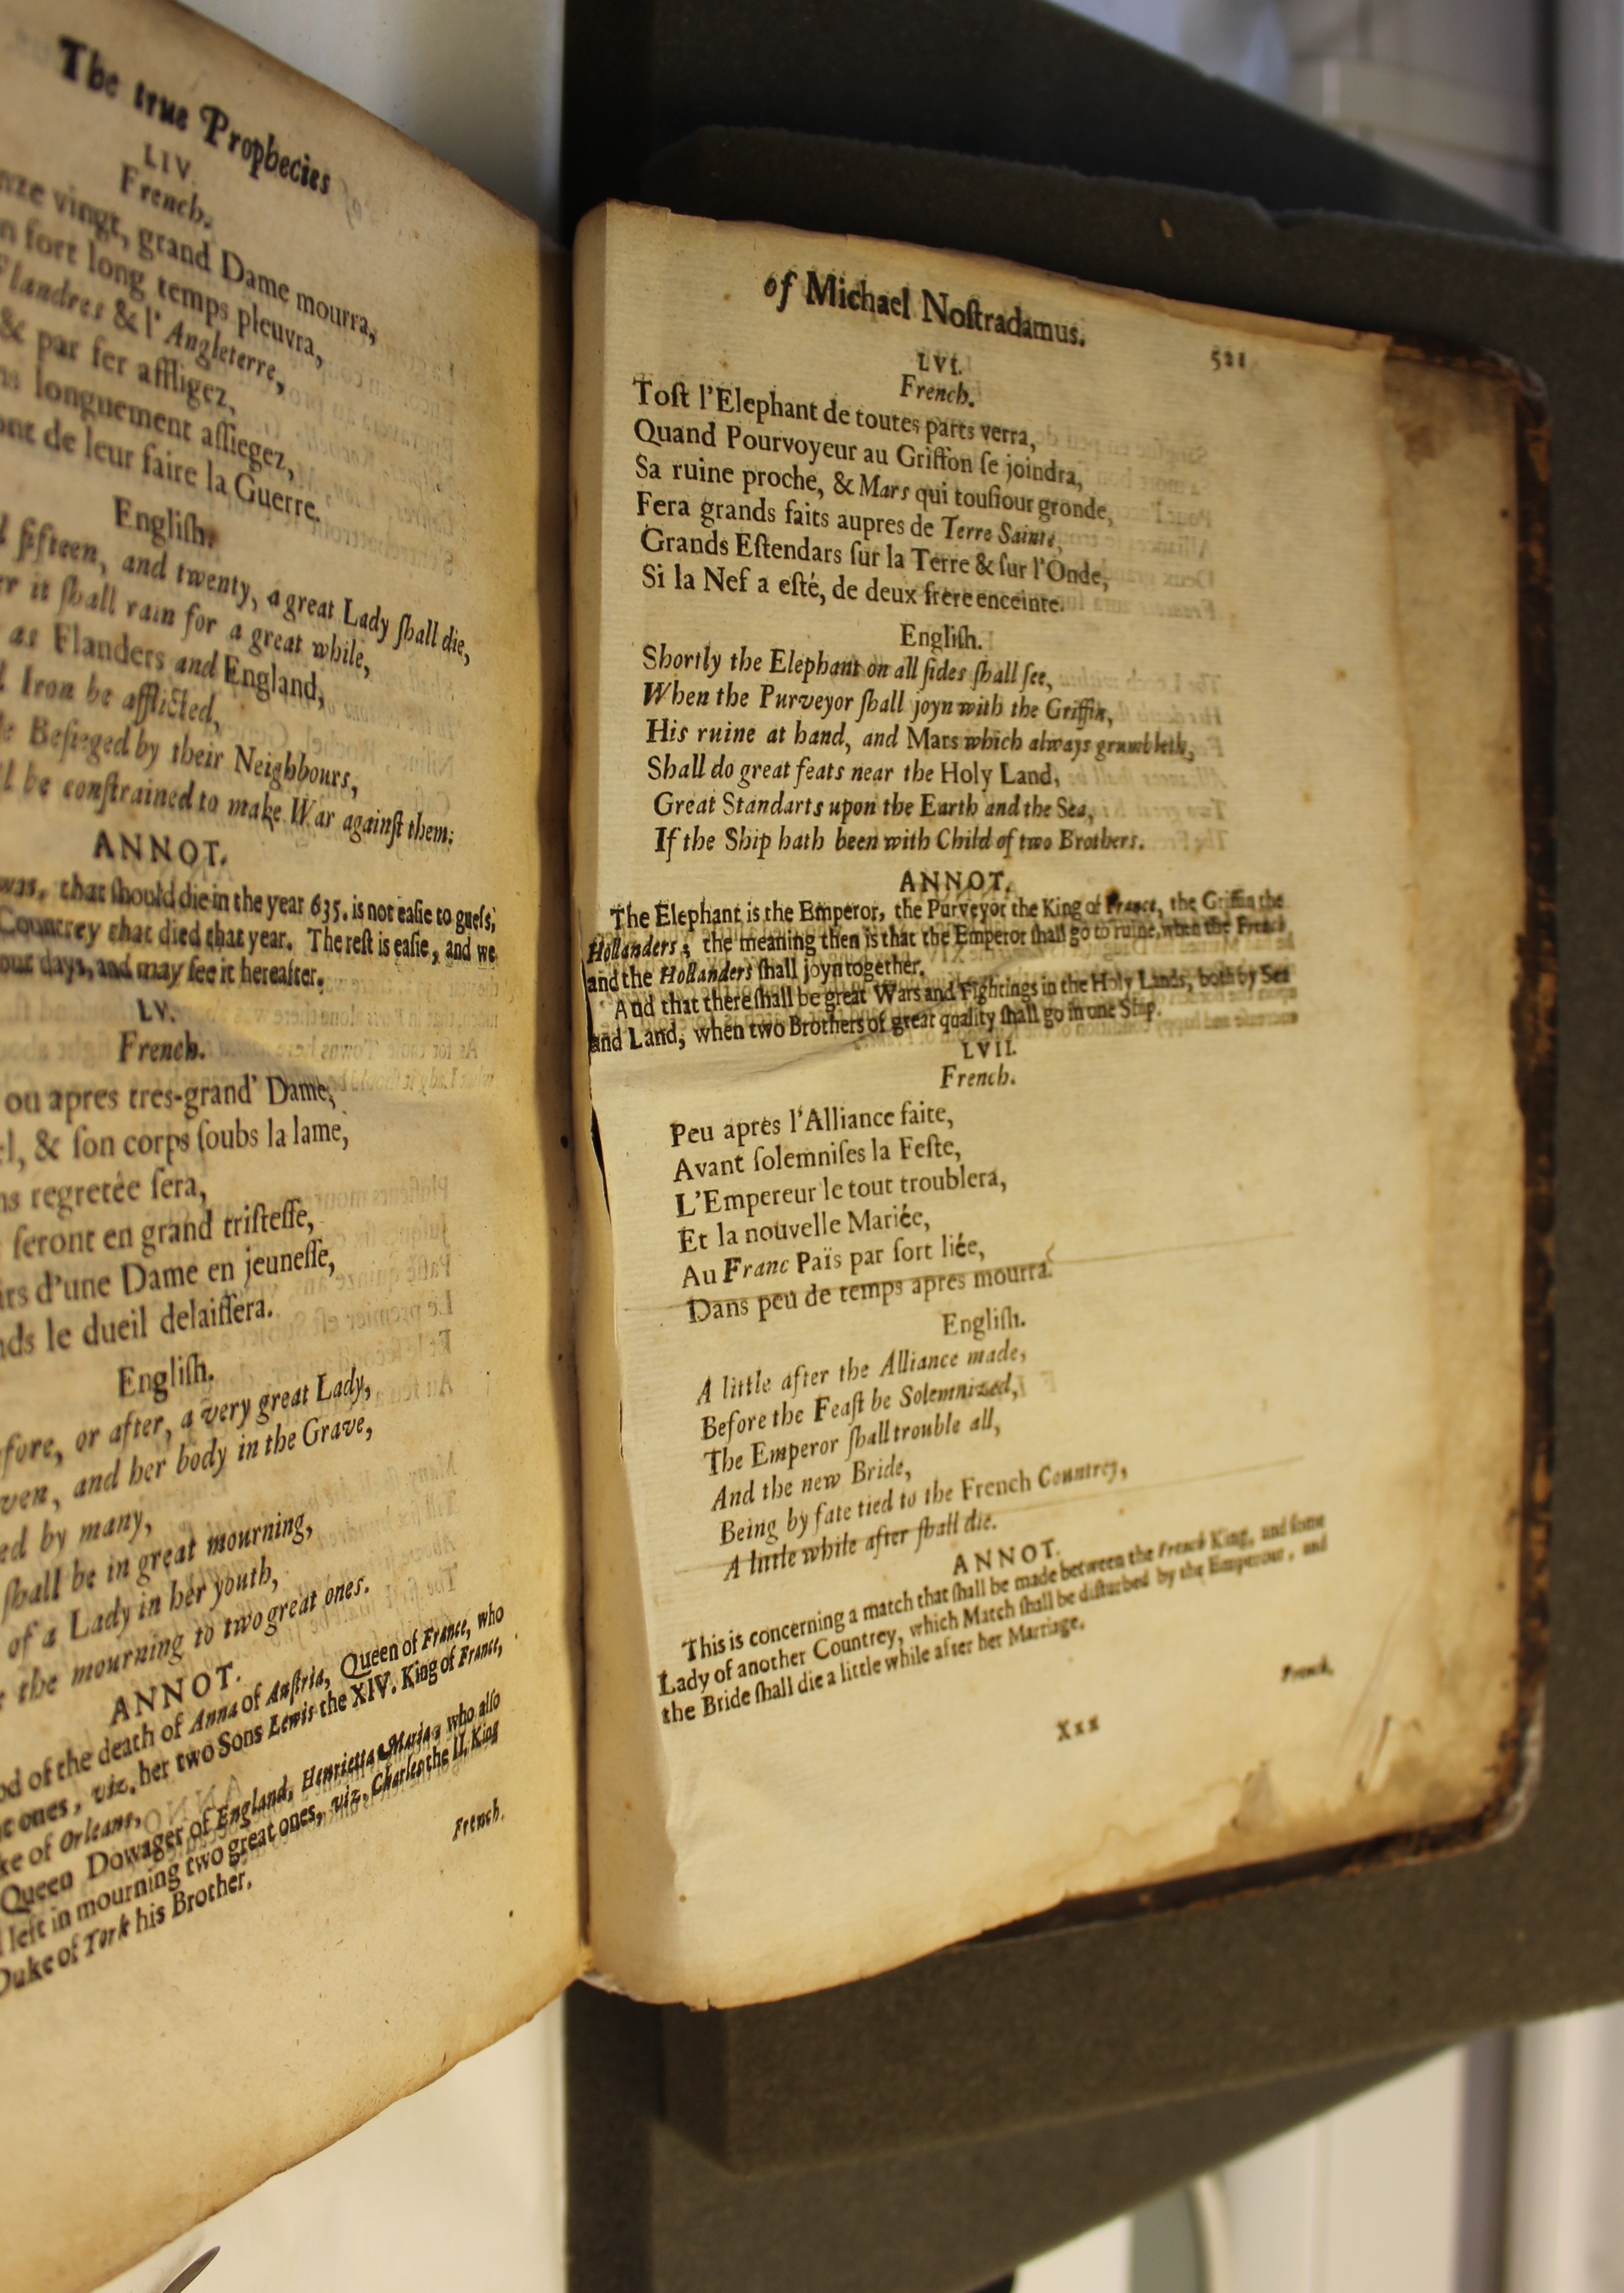 The true Prophecies
LIV.
French.
vingt, grand Dame mourra,
fort long temps pleuvra,
Flandres & l'Angleterre,
& par fer affligez,
longuement aſſiegez,
de leur faire la Guerre.
Engliſh.
fifteen, and twenty, a great Lady ſhall die,
it ſhall rain for a great while,
as Flanders and England,
Iron be afflicted,
Beſieged by their Neighbours,
be conſtrained to make War againſt them:
ANNOT.
was, that ſhould die in the year 635. is not eaſie to gueſs,
Countrey that died that year. The reſt is eaſie, and we
our days, and may ſee it hereafter.
LV.
French.
ou apres tres-grand' Dame,
& ſon corps ſoubs la lame,
regretée ſera,
ſeront en grand triſteſſe,
d'une Dame en jeuneſſe,
le dueil delaiſſera.
Engliſh.
or after, a very great Lady,
and her body in the Grave,
by many,
ſhall be in great mourning,
of a Lady in her youth,
the mourning to two great ones.
ANNOT.
of the death of Anna of Auſtria, Queen of France, who
ones, viz. her two Sons Lewis the XIV. King of France,
of Orleans,
Queen Dowager of England, Henrietta Maria, who alſo
left in mourning two great ones, viz. Charles the II. King
Duke of York his Brother.
French.
of Michael Noſtradamus.
521
LVI.
French.
Toſt l'Elephant de toutes parts verra,
Quand Pourvoyeur au Griffon ſe joindra,
Sa ruine proche, & Mars qui touſiour gronde,
Fera grands faits aupres de Terre Sainte,
Grands Eſtendars ſur la Terre & ſur l'Onde,
Si la Nef a eſté, de deux frere enceinte.
Engliſh.
Shortly the Elephant on all ſides ſhall ſee,
When the Purveyor ſhall joyn with the Griffin,
His ruine at hand, and Mars which always grumbleth,
Shall do great feats near the Holy Land,
Great Standarts upon the Earth and the Sea,
If the Ship hath been with Child of two Brothers.
ANNOT.
The Elephant is the Emperor, the Purveyor the King of France, the Griffin the
Hollanders; the meaning then is that the Emperor ſhall go to ruine, when the French
and the Hollanders ſhall joyn together.
And that there ſhall be great Wars and Fightings in the Holy Lands, both by Sea
and Land, when two Brothers of great quality ſhall go in one Ship.
LVII.
French.
Peu apres l'Alliance faite,
Avant ſolemniſes la Feſte,
L'Empereur le tout troublera,
Et la nouvelle Mariée,
Au Franc Païs par ſort liée,
Dans peu de temps apres mourra.
Engliſh.
A little after the Alliance made,
Before the Feaſt be Solemnized,
The Emperor ſhall trouble all,
And the new Bride,
Being by fate tied to the French Countrey,
A little while after ſhall die.
ANNOT.
This is concerning a match that ſhall be made between the French King, and ſome
Lady of another Countrey, which Match ſhall be diſturbed by the Emperour, and
the Bride ſhall die a little while after her Marriage.
French,
Xxx